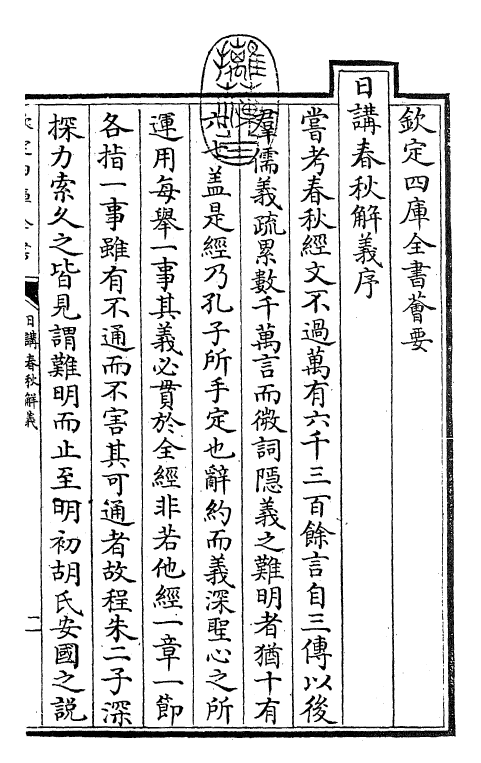 欽定四庫全書薈要
日講春秋解義序
嘗考春秋經文不過萬有六千三百餘言自三傳以後
羣儒義疏累數千萬言而微詞隱義之難明者猶十有
六七蓋是經乃孔子所手定也辭約而義深聖心之所
運用每舉一事其義必貫於全經非若他經一章一節
各指一事雖有不通而不害其可通者故程朱二子深
探力索久之皆見謂難明而止至明初胡氏安國之説
日講春秋解義
二